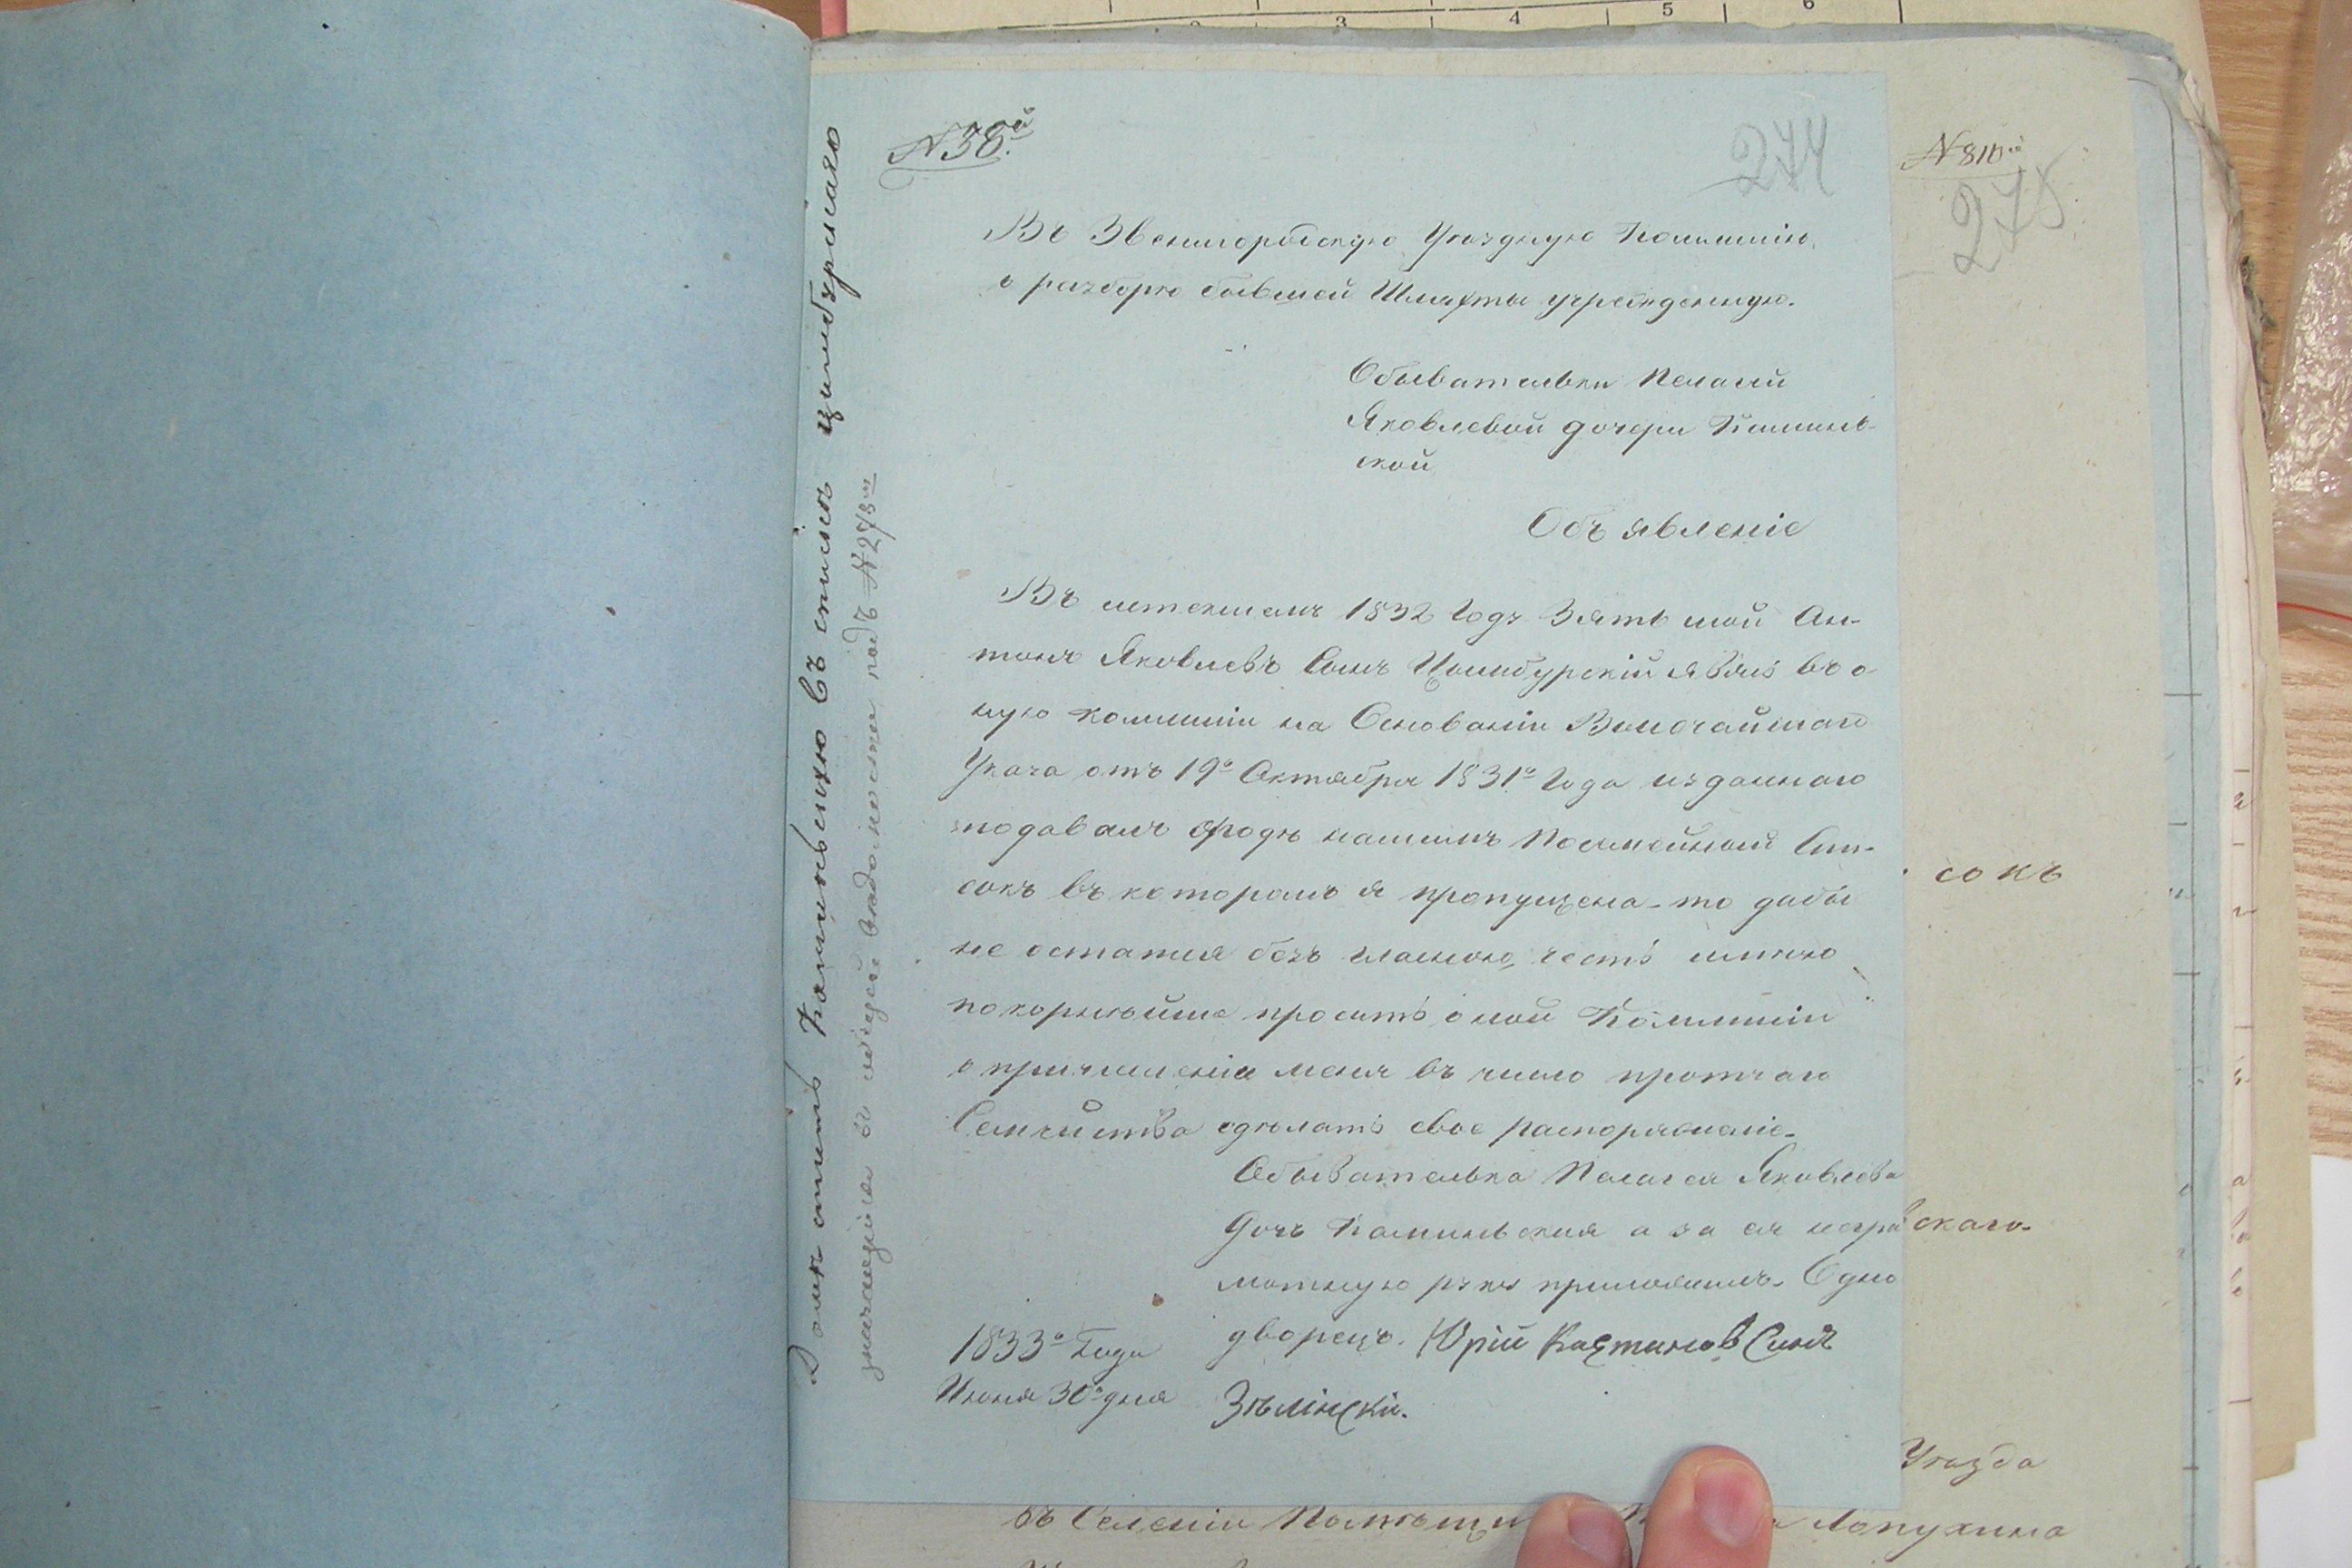 2 3 4 5 6
N 38.й
274
Въ Звенигородскую Уѣздную Комисiю,
о разборѣ бывшей Шляхты учрежденную.
Обывательки Пелагiи
Яковлевой дочери Каминь-
ской
Объявленiе
Въ истекшемъ 1832 Году Зять мой Ан-
тонъ Яковлевъ Сынъ Цымбурскiй явясь въ о-
ную комисiи на Основанiи Высочайшаго
Указа отъ 19о Октября 1831о Года изданнаго
подавалъ о родѣ нашемъ Посемейный Спи-
сокъ въ которомъ я пропущена - то дабы
не остатся безъ честь имѣю
покорнѣйше просить оной Комисiи
о причисленiи меня въ число протчаго
Семейства сдѣлать свое распоряженiе.
Обывателька Пелагея Яковлева
Дочь Каминьская а за ея негра
мотную руку приложилъ. Одно
дворецъ. Юрiй Каэтановъ Синъ
Зѣлiнскiй.
1833о Года
Июня 30о дня
Каминьскую въ списокъ Цимбурскаго
значащийся въ общей вѣдомости подъ N 273м
N 810й
275
сокъ
скаго.
Уѣзда
въ Селенiи Лопухина